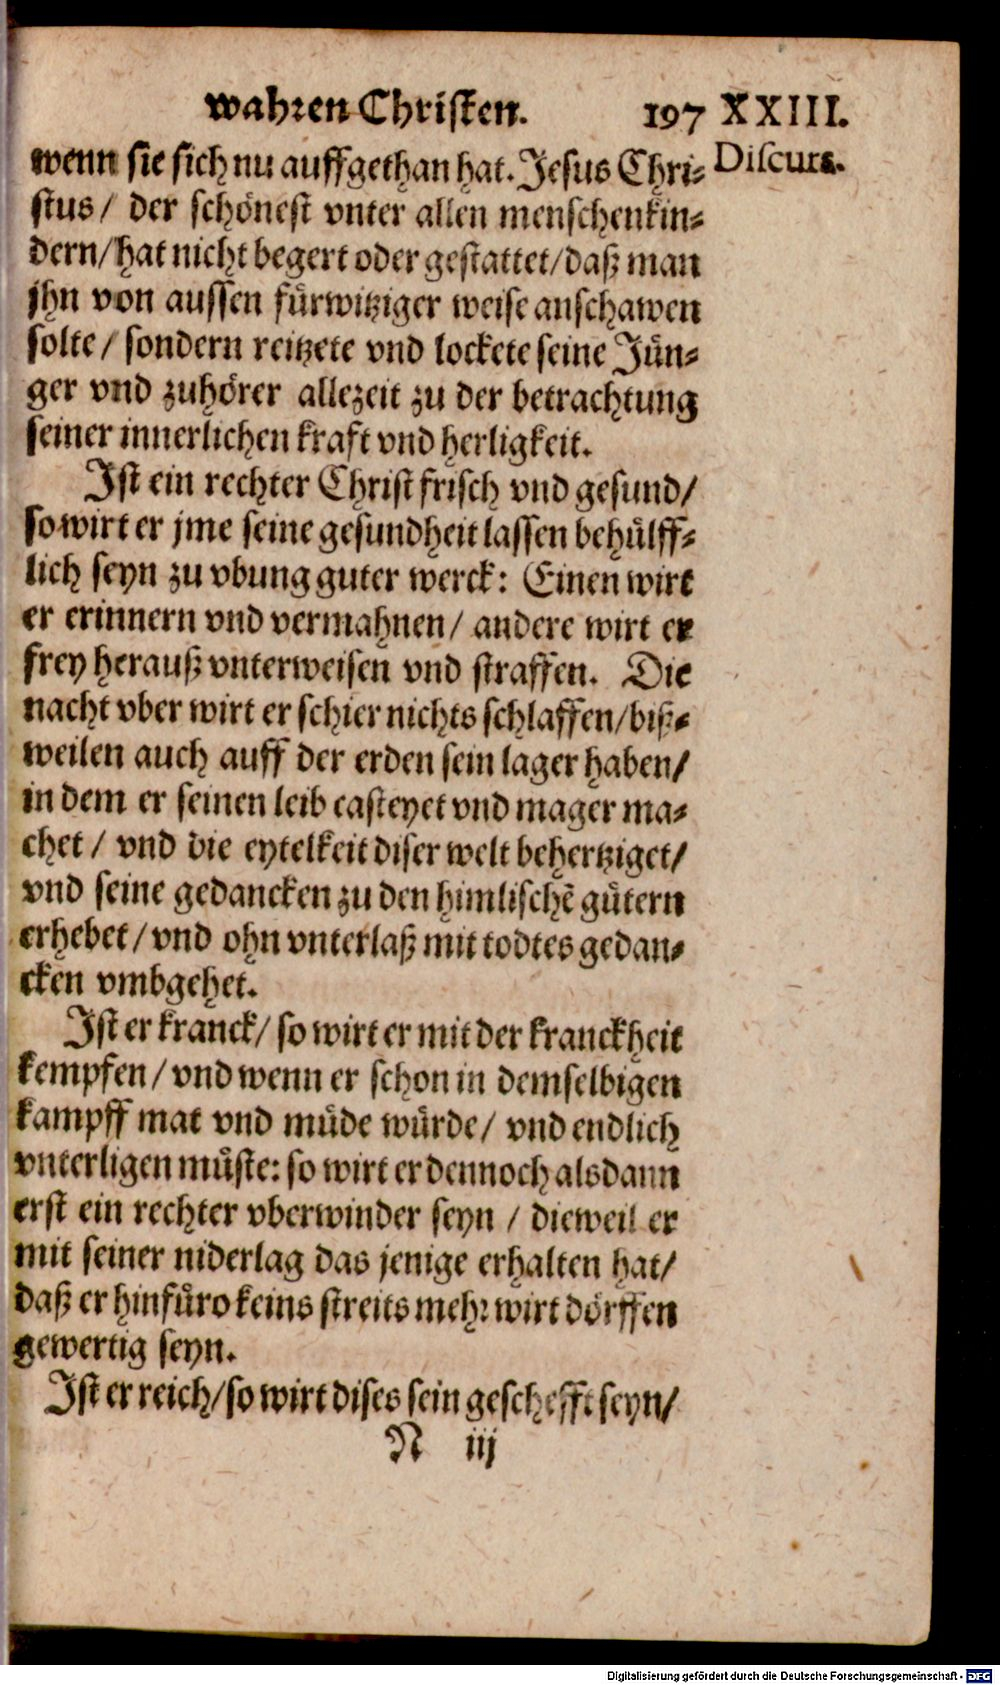 wahren Christen. 197 XXIII.
Discurs.
wenn sie sich nu auffgethan hat. Jesus Chri-
stus / der schönest vnter allen menschenkin-
dern / hat nicht begert oder gestattet / daß man
jhn von aussen fürwitziger weise anschawen
solte / sondern reitzete vnd lockete seine Jün-
ger vnd zuhörer allezeit zu der betrachtung
seiner innerlichen kraft vnd herligkeit.
Ist ein rechter Christ frisch vnd gesund /
so wirt er jme seine gesundheit lassen behülff-
lich seyn zu vbung guter werck: Einen wirt
er erinnern vnd vermahnen / andere wirt er
frey herauß vnterweisen vnd straffen. Die
nacht vber wirt er schier nichts schlaffen / biß-
weilen auch auff der erden sein lager haben /
in dem er seinen leib casteyet vnd mager ma-
chet / vnd die eytelkeit diser welt behertziget /
vnd seine gedancken zu den himlischē gütern
erhebet / vnd ohn vnterlaß mit todtes gedan-
cken vmbgehet.
Ist er kranck / so wirt er mit der kranckheit
kempfen / vnd wenn er schon in demselbigen
kampff mat vnd müde würde / vnd endlich
vnterligen müste: so wirt er dennoch alsdann
erst ein rechter vberwinder seyn / dieweil er
mit seiner niderlag das jenige erhalten hat /
daß er hinfüro keins streits mehr wirt dörffen
gewertig seyn.
Ist er reich / so wirt dises sein geschefft seyn /
N iij
Digitalisierung gefördert durch die Deutsche Forschungsgemeinschaft - DFG